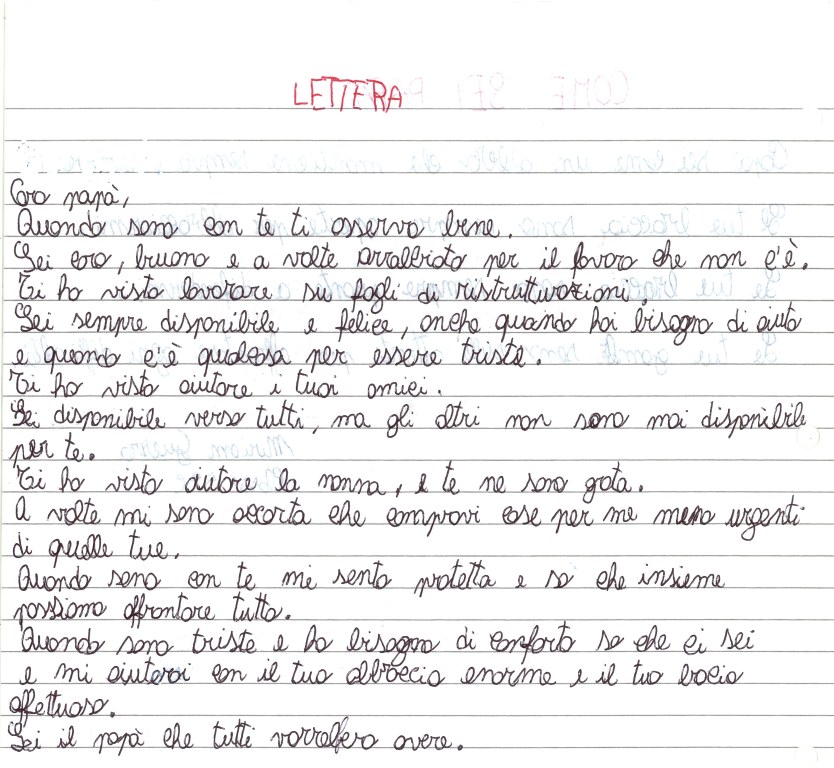 LETTERA
Caro papà,
Quando sono con te ti osservo bene.
Sei caro, buono e a volte arrabbiato per il lavoro che non c'è.
Ti ho visto lavorare su fogli di ristrutturazioni.
Sei sempre disponibile e felice, anche quando hai bisogno di aiuto
e quando c'è qualcosa per essere triste.
Ti ho visto aiutare i tuoi amici.
Sei disponibile verso tutti, ma gli altri non sono mai disponibile
per te.
Ti ho visto aiutare la nonna, e te ne sono grata.
A volte mi sono accorta che compravi cose per me meno urgenti
di quelle tue.
Quando sono con te mi sento protetta e so che insieme
possiamo affrontare tutto.
Quando sono triste e ho bisogno di conforto so che ci sei
e mi aiuterai con il tuo abbraccio enorme e il tuo bacio
affettuoso.
Sei il papà che tutti vorrebbero avere.